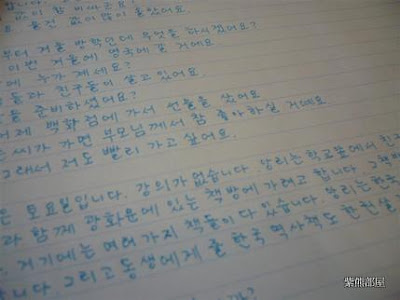 비싸군요?
요. 물건 값이 많이 올랐어요.
부터 겨울 방학인데 무엇을 하시겠어요?
이번 겨울에 영국에 갈 거예요
에 누가 계세요?
들과 친구들이 살고 있어요.
을 준비하셨어요?
어제 백화점에 가서 선물을 샀어요
씨가 가면 부모님께서 참 좋아하실 거예요.
그래서 저도 빨리 가고 싶어요.
은 토요일입니다. 강의가 없습니다. 앙리는 학교 앞에서 친구
과 함께 광화문에 있는 책방에 가려고 합니다. 그 책방
거기에는 여러가지 책들이 다 있습니다. 앙리는 한국
니다. 그리고 동생에게 줄 한국 역사책도 한 권 살
까?
紫熊部屋